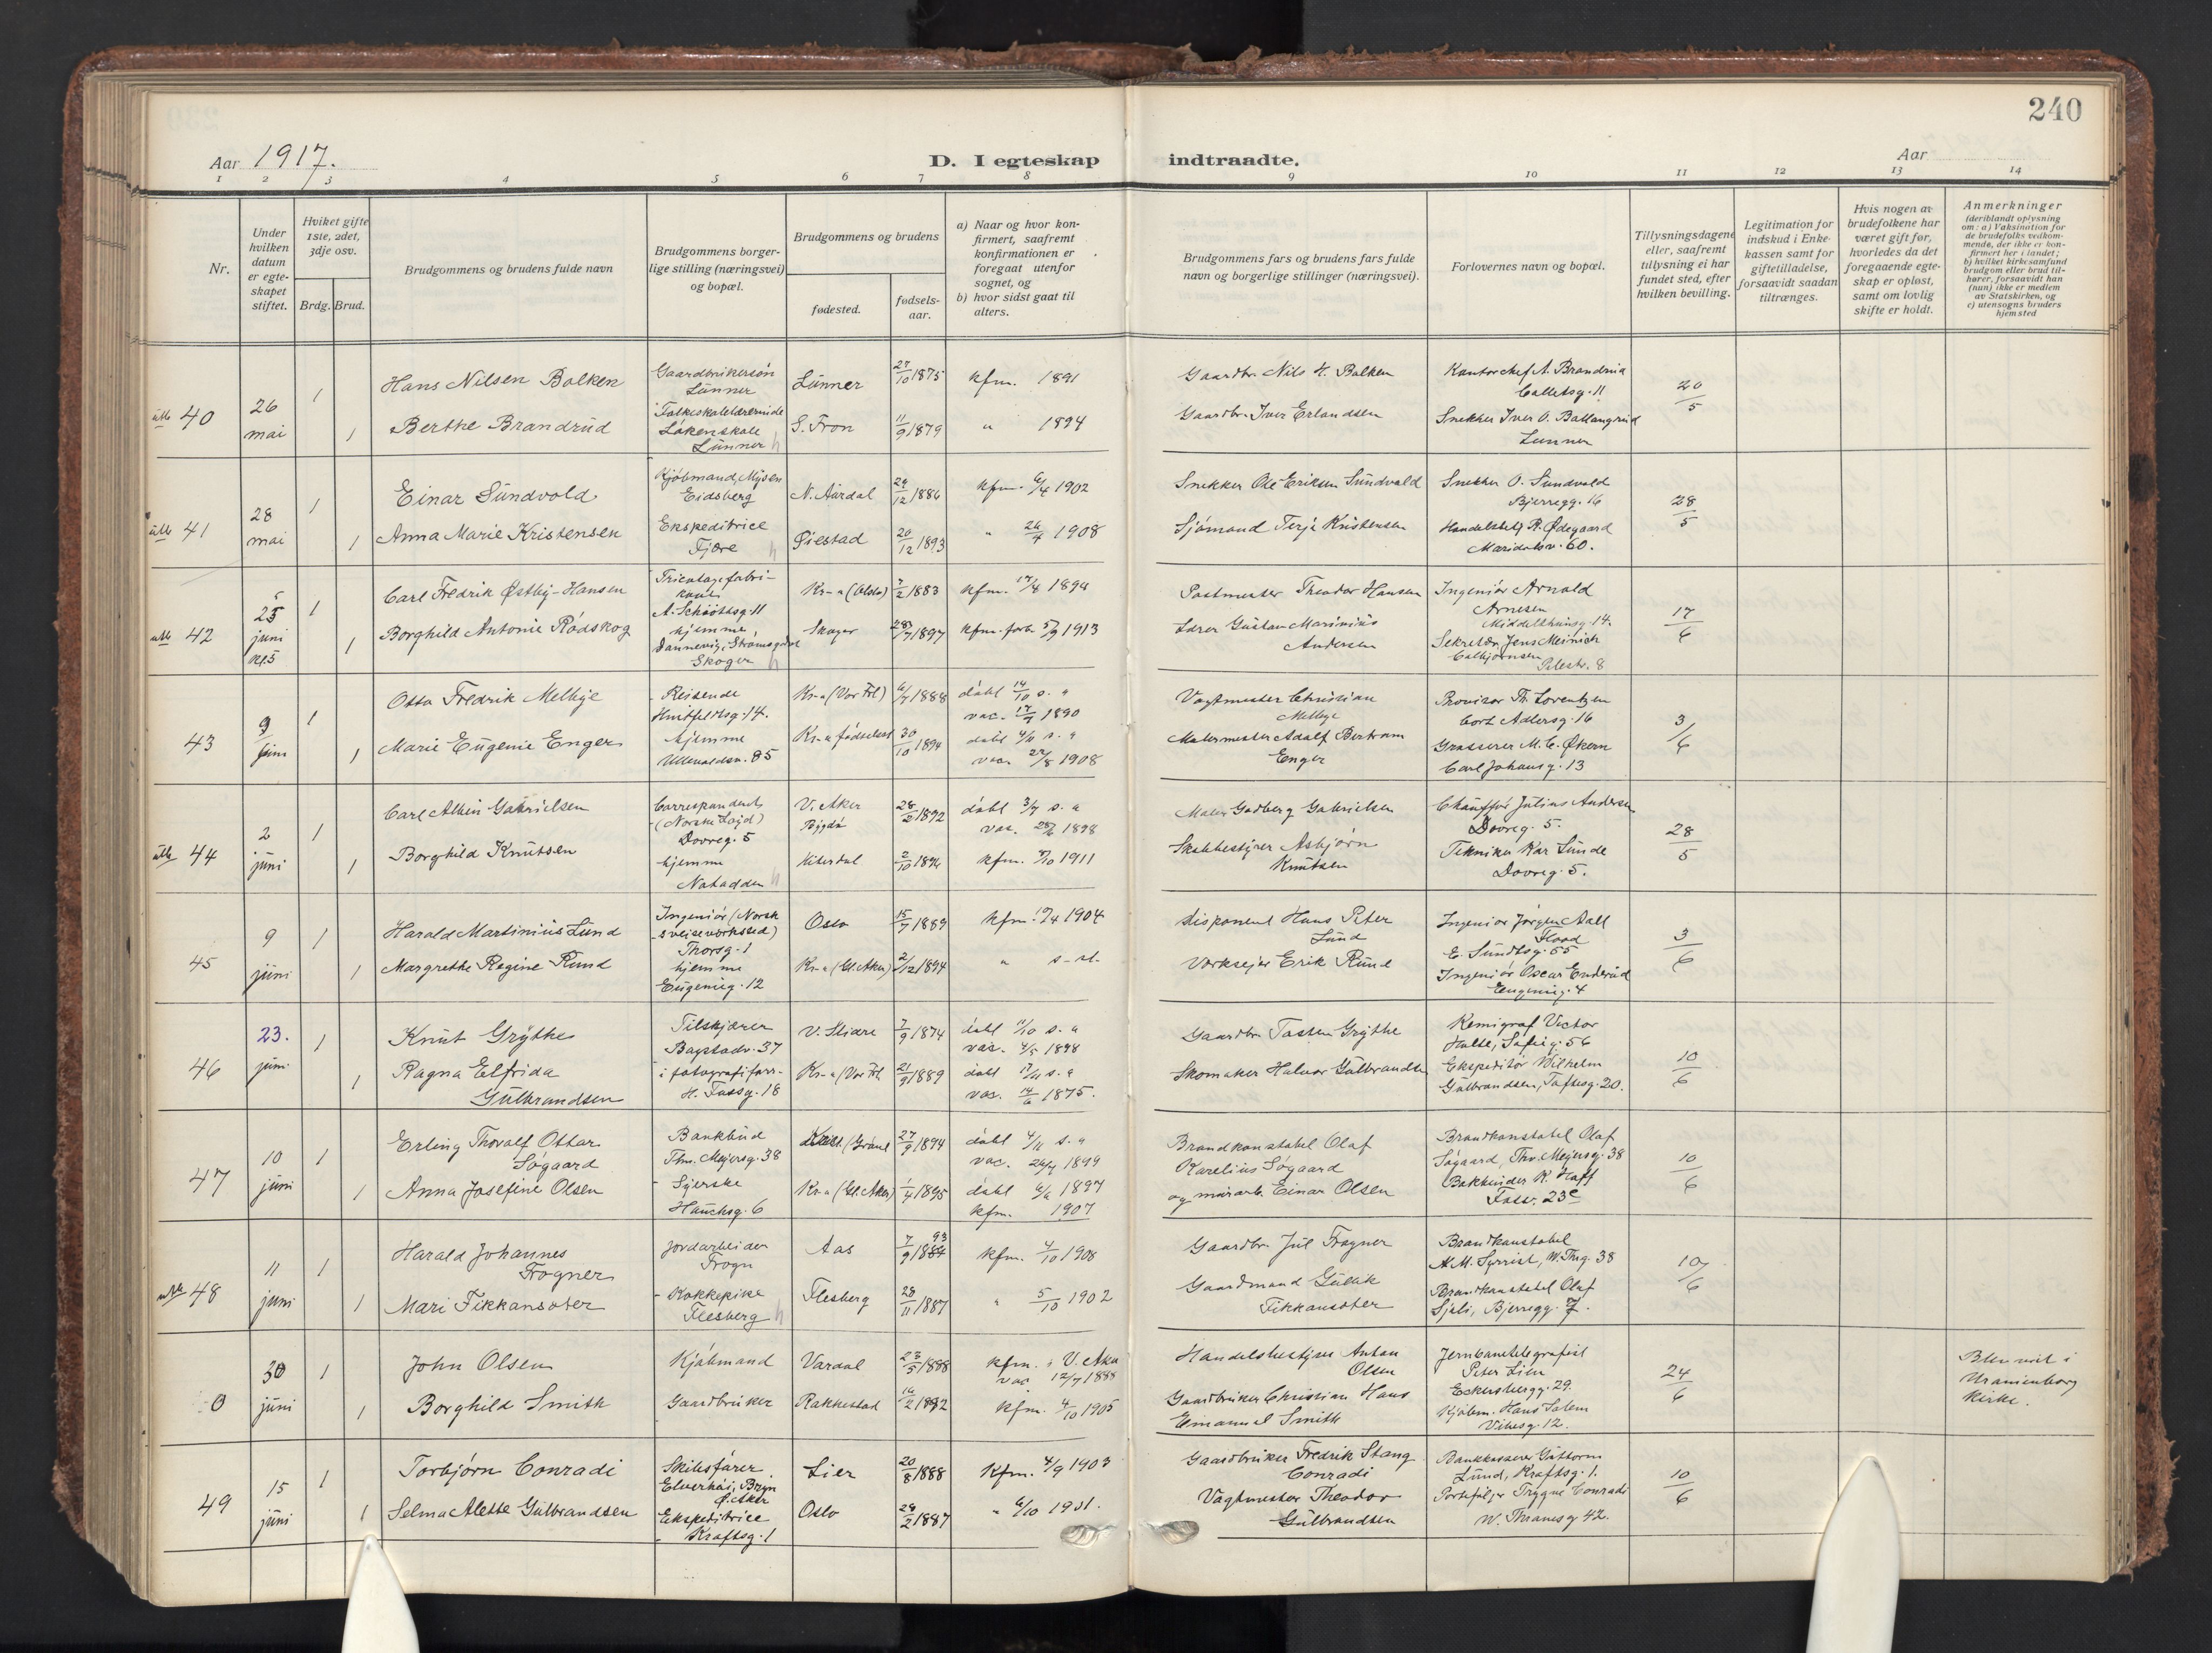 240
Aar 1917.
D. I egteskap indtraadte.
Aar
1 2 3 4 5 6 7 8 9 10 11 12 13 14
Nr.
Under hvilken datum er egteskapet stiftet.
Hviket gifte 1ste, 2det, 3dje osv.
Brdg. Brud.
Brudgommens og brudens fulde navn
Brudgommens borgerlige stilling (næringsvei) og bopæl.
Brudgommens og brudens
fødested.
fødselsaar.
a) Naar og hvor konfirmert, saafremt konfirmationen er foregaat utenfor sognet, og
b) hvor sidst gaat til alters.
Brudgommens fars og brudens fars fulde navn og borgerlige stillinger (næringsvei).
Forlovernes navn og bopæl.
Tillysningsdagene eller, saafremt tillysning ei har fundet sted, efter hvilken bevilling.
Legitimation for indskud i Enkekassen samt for giftetilladelse, forsaavidt saadan tiltrænges.
Hvis nogen av brudefolkene har været gift før, hvorledes da det foregaaende egteskap er opløst, samt om lovlig skifte er holdt.
Anmerkninger (deriblandt oplysning om: a) Vaksination for de brudefolks vedkommende, der ikke er konfirmert her i landet; b) hvilket kirkesamfund brudgom eller brud tilhører, forsaavidt han (hun) ikke er medlem av Statskirken, og c) utensogns bruders hjemsted
40 26 mai 1 Hans Nilsen Balken Gaardbrukersøn Lunner Lunner 27/10 1875 kfm. 1891 Gaardbr. Nils H. Balken Kontorchef A. Brandrud Colletsg. 11 20/5
1 Berthe Brandrud Folkeskolelærerinde Løkenskole Lunner S. Fron 11/9 1879 " 1894 Gaardbr. Iver Erlandsen Snekker Iver O. Ballangrud Lunner
41 28 mai 1 Einar Sundvold Kjøbmand, Mysen Eidsberg N. Aurdal 29/12 1886 kfm. 6/4 1902 Snekker Ole Eriksen Sundvold Snekker O. Sundvold Bjerregg. 16 28/5
1 Anna Marie Kristensen Ekspeditrice Fjære Øiestad 20/12 1893 " 26/4 1908 Sjømand Terje Kristensen Handelsbetj. R. Ødegaard Maridalsv. 60.
42 25 juni kl. 5 1 Carl Fredrik Østby-Hansen Tricotagefabrikant A. Schøttsg. 11 Kr-a (Oslo) 7/2 1883 kfm. 17/4 1898 Postmester Theodor Hansen Ingeniør Arnold Arnesen Middelthunsg. 14. 17/6
1 Borghild Antonie Rødskog hjemme Dannevig, Strømsgodset Skoger Skoger 28/7 1897 kfm. forb. 5/9 1913 Lærer Gustav Marinius Andersen Sekretær Jens Meinich Colbjørnsen Pilestr. 8
43 9 juni 1 Otto Fredrik Melbye Reisende Huitfeldtsg. 14. Kr-a (Vor Frl.) 6/7 1888 døbt 14/10 s. a vac. 17/9 1890 Vagtmester Christian Melbye Provisor Th. Lorentzen Cort Adlersg. 16 3/6
1 Marie Eugenie Enger hjemme Ullevoldsv. 85 Kr-a fødselsst 30/10 1894 døbt 4/11 s. a vac. 22/8 1908 Malermester Adolf Bertram Enger Grosserer M. C. Økern Carl Johansg. 13
44 2 juni 1 Carl Albin Gabrielsen Correspondent (Norske Lloyd) Dovreg. 5 V. Aker Bygdø 28/2 1892 døbt 3/7 s. a vac. 28/6 1898 Maler Godberg Gabrielsen Chauffør Julius Andersen Dovreg. 5. 28/5
1 Borghild Knutsen hjemme Notodden Hiterdal 2/10 1896 kfm. 8/10 1911 Skolebestyrer Asbjørn Knutsen Tekniker Kår Lunde Dovreg. 5.
45 9 juni 1 Harald Martinius Lund Ingeniør (Norsk sveiseverksted) Thorsg. 1 Oslo 15/7 1889 kfm. 17/4 1904 Disponent Hans Peter Lund Ingeniør Jørgen Aall Flood E. Sundtsg. 55 3/6
1 Margrethe Regine Rund hjemme Eugenieg. 12 Kr-a (Gl. Aker) 2/12 1894 " s-st. Verkseier Erik Rund Ingeniør Oscar Enderud Eugenieg. 4
46 23. juni 1 Knut Grythe Tilskjærer Bogstadv. 37 V. Slidre 7/9 1874 døbt 11/10 s. a vac. 4/5 1898 Gaardbr. Tosten Grythe Kemigraf Victor Holte, Sofieg. 56 10/6
1 Ragna Elfrida Gulbrandsen i fotografiforr. H. Fossg. 18 Kr-a (Vor Frl. 21/9 1889 døbt 17/11 s. a vac. 14/6 1875. Skomaker Halvor Gulbrandsen Ekspeditør Wilhelm Gulbrandsen, Toftesg. 20.
47 10 juni 1 Erling Thoralf Ottar Søgaard Bankbud Thv. Meyersg. 38 Krist. (Grønl 27/9 1894 døbt 4/11 s. a vac. 26/7 1899 Brandkonstabel Olaf Karelius Søgaard Brandkonstabel Olaf Søgaard, Thv. Meyersg. 38 10/6
1 Anna Josefine Olsen Syerske Hauchsg. 6 Kr-a (Gl. Aker) 1/4 1895 døbt 6/6 1897 kfm. 1907 og murarb. Einar Olsen Bokbinder K. Hoff Fossv. 23c
48 11 juni 1 Harald Johannes Frogner Jordarbeider Frogn Aas 7/9 1884 93 kfm. 4/10 1908 Gaardbr. Jul Frogner Brandkonstabel A. M. Syrrist, W. Thrg. 38 10/6
1 Mari Fikkansæter Kokkepike Flesberg Flesberg 28/11 1887 " 5/10 1902 Gaardmand Gullik Fikkansæter Brandkonstabel Olaf Sjøli, Bjerregg. 7.
0 30 juni 1 John Olsen Kjøbmand Vardal 23/5 1888 kfm. i V. Aker vac 12/7 1888 Handelsbestyrer Anton Olsen Jernbanetelegrafist Peter Lien Eckersbergg. 29. 24/6 Blev viet i Uranienborg kirke.
1 Borghild Smith Gaardbruker Rakkestad 16/2 1892 kfm. 4/10 1905 Gaardbruker Christian Hans Emanuel Smith Kjøbm. Hans Salem Vibesg. 12.
49 15 juni 1 Torbjørn Conradi Skibsfører Elverhøi, Bryn Ø. Aker Lier 20/8 1888 Kfm. 4/9 1903 Gaardbruker Fredrik Stang Conradi Bankkasserer Guttorm Lund, Kraftsg. 1. 10/6
1 Selma Alette Gulbrandsen Ekspeditrice Kraftsg. 1 Oslo 29/2 1887 " 6/10 1901. Vagtmester Theodor Gulbrandsen Portefølje Trygve Conradi W. Thranesg 42.